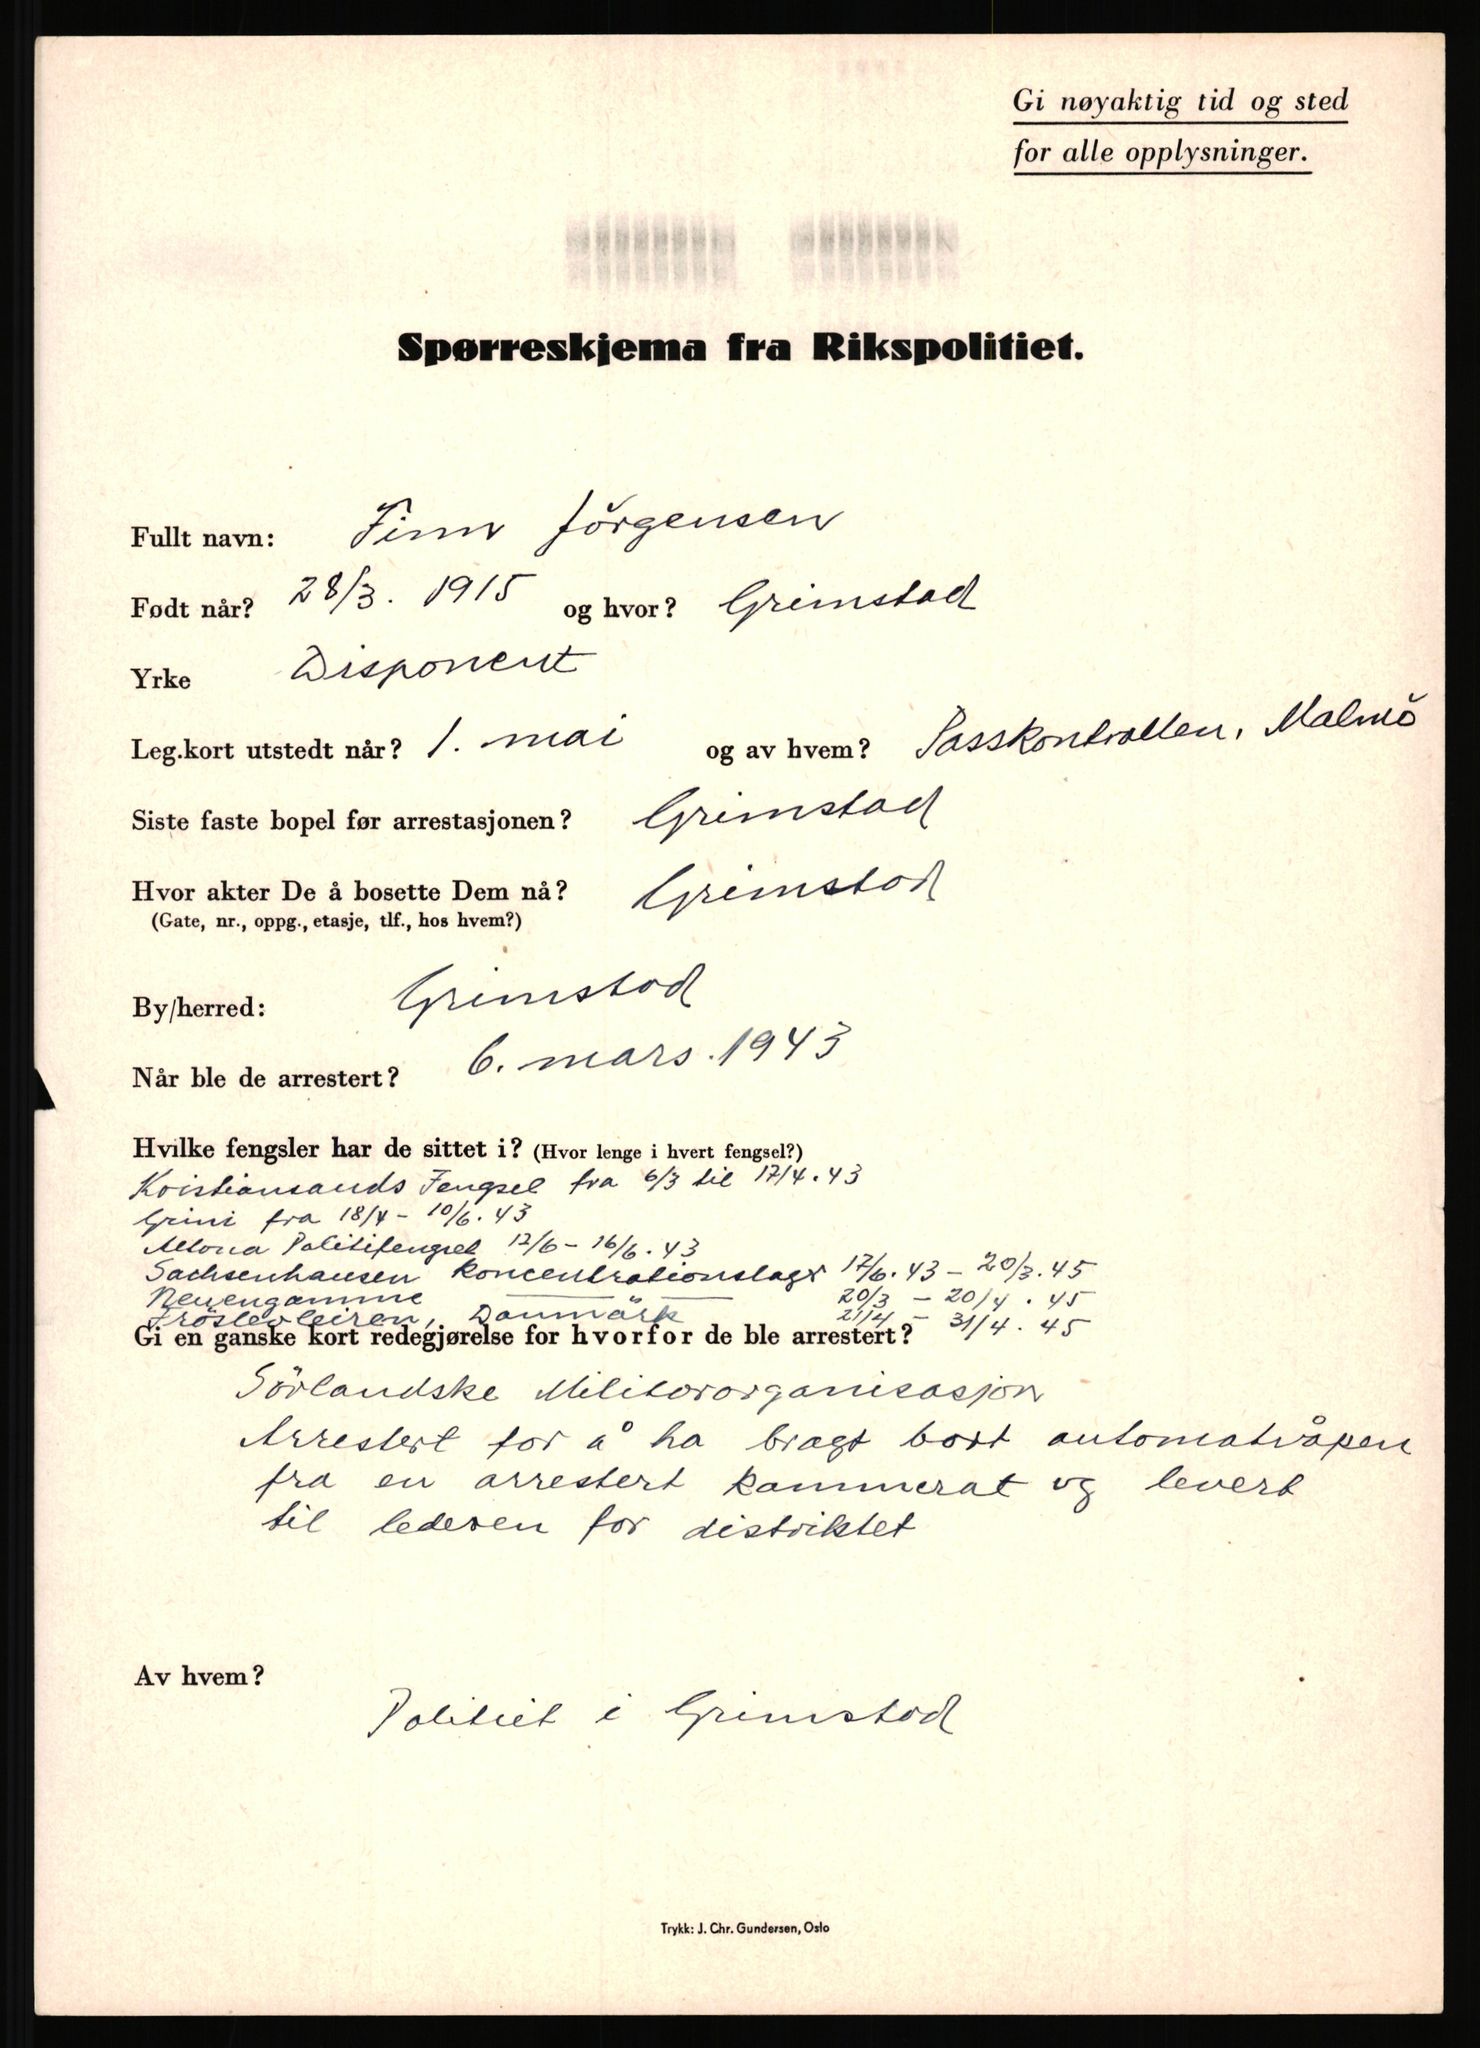 Gi nøyaktig tid og sted
for alle opplysninger.
Spørreskjema fra Rikspolitiet.
Fullt navn: Finn Jörgensen
Født når? 28/3. 1915 og hvor? Grimstad
Yrke Disponent
Leg.kort utstedt når? 1. mai og av hvem? Passkontrollen, Malmö
Siste faste bopel før arrestasjonen? Grimstad
Hvor akter De å bosette Dem nå? Grimstad
(Gate, nr., oppg., etasje, tlf., hos hvem?)
By/herred: Grimstad
Når ble de arrestert? 6. mars. 1943
Hvilke fengsler har de sittet i? (Hvor lenge i hvert fengsel?)
Kristiansands Fengsel fra 6/3 til 17/4. 43
Grini fra 18/4 - 10/6. 43
Altona Politifengsel 12/6 - 16/6. 43
Sachsenhausen Koncentrationslager 17/6. 43 - 20/3. 45
Neuengamme — 20/3 - 20/4. 45
Fröslevleiren, Danmark 21/4 - 31/4. 45
Gi en ganske kort redegjørelse for hvorfor de ble arrestert?
Sörlandske Militärorganisasjon
Arrestert for å ha bragt bort automatvåpen
fra en arrestert kammerat og levert
til lederen for distriktet
Av hvem?
Politiet i Grimstad
Trykk: J. Chr. Gundersen, Oslo